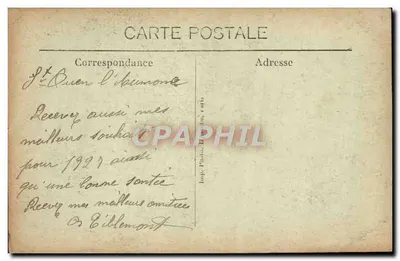 CARTE POSTALE
Correspondance
Adresse
St Ouen l'Aumone
Recevez aussi mes
meilleurs souhaits
pour 1927 aussi
qu'une bonne santée
Recevez mes meilleurs amitiées
Tillemont
CPAPHIL
Imp. Phot.